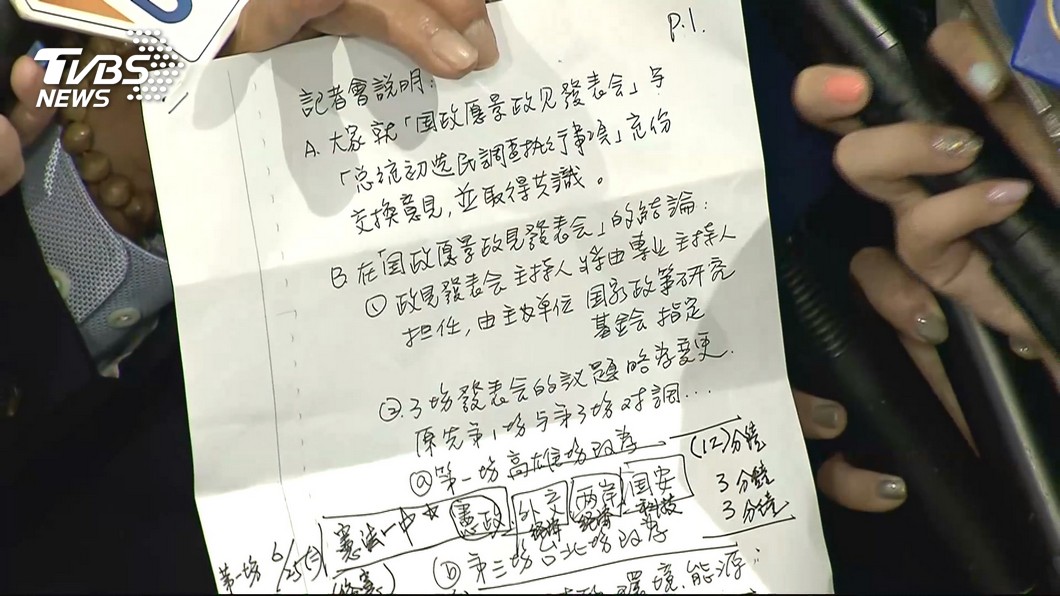 TVBS
NEWS
P.1.
記者會說明：
A. 大家就「国政愿景政见發表会」与
「总统初选民調查执行事項」充份
交換意見，並取得共識。
B. 在「国政愿景政見發表会」的結論：
① 政見發表会主持人將由專业主持人
担任，由主办单位 国家政策研究
基金会 指定
② 3場發表会的議題略為變更.
原先第1場与第3場对調...
ⓐ 第一場高雄場改為 (12)分鐘
3分鐘
憲法一中 憲政 外交 兩岸 国安 3分鐘
经济 经济 科技
第一場 6/25(二)
ⓑ 第三場台北場改為
環境.能源：